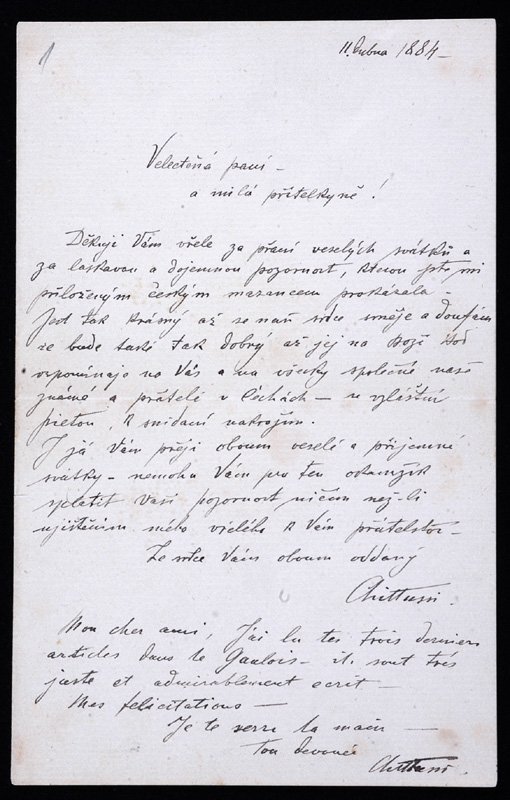 1
11. dubna 1884 –
Velectěná paní –
a milá přítelkyně!
Děkuji Vám vřele za přání veselých svátků a
za laskavou a dojemnou pozornost, kterou jste mi
přiloženým českým mazancem prokázala –
Jest tak krásný až se naň srdce směje a doufám
že bude také tak dobrý až jej na Boží Hod
vzpomínaje na Vás a na všecky společné naše
známé a přátelé v Čechách – s zvláštní
pietou, k snídaní nakrojím.
I já Vám přeji oboum veselé a příjemné
svátky – nemoha Vám pro ten okamžik
splatit Vaši pozornost ničím než-li
ujištěním mého vřelého k Vám přátelství –
Ze srdce Vám oboum oddaný
Chittussi.
Mon cher ami, J'ai lu tes trois derniers
articles dans le Gaulois – ils sont très
juste et admirablement ecrit –
Mes felicitations –
Je te serre la main –
Ton devoué
Chittussi.